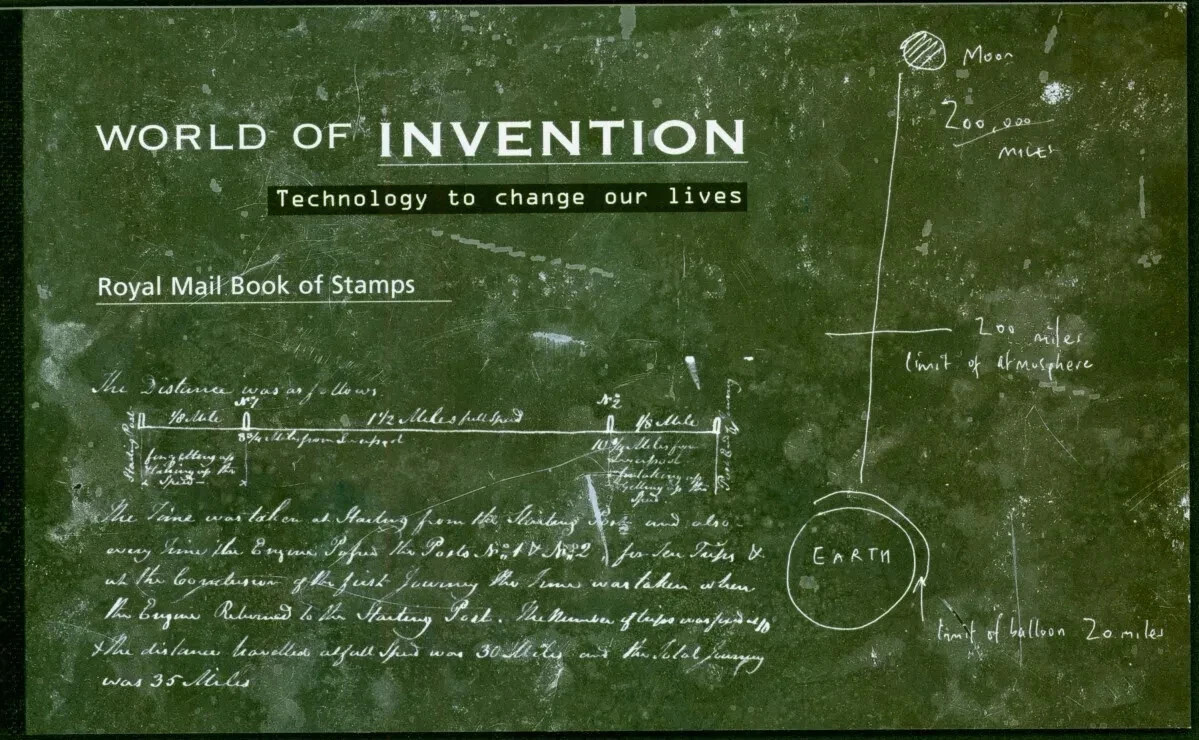 WORLD OF INVENTION
Technology to change our lives
Royal Mail Book of Stamps
The Distance was as follows
No 1
No 2
1/8 Mile
1 1/2 Miles full speed
1/8 Mile
Starting Post
3 3/4 Miles from Liverpool
for getting up
the
Speed
The Time was taken at Starting from the Starting Post and also
every Time the Engine Passed the Posts No 1 & No 2 for Ten Trips &
at the Conclusion of the first Journey the Time was taken when
the Engine Returned to the Starting Post. The Number of trips was
& the distance travelled at full Speed was 30 Miles and the Total Journey
was 35 Miles
Moon
200,000
MILES
200 miles
limit of atmosphere
EARTH
limit of balloon 20 miles